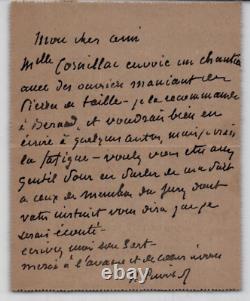 Mon cher ami
Mlle Cornillac envoie un chantier
avec des ouvriers maniant des
Pierres de taille - je la recommande
à Besnard, et voudrais bien en
écrire à quelques autres, mais je crains
la fatigue - voulez vous être assez
gentil pour en parler de ma part
à ceux des membres du Jury dont
votre instinct vous dira que je
serais écouté
écrivez moi son sort
merci à l'avance et de cœur à vous